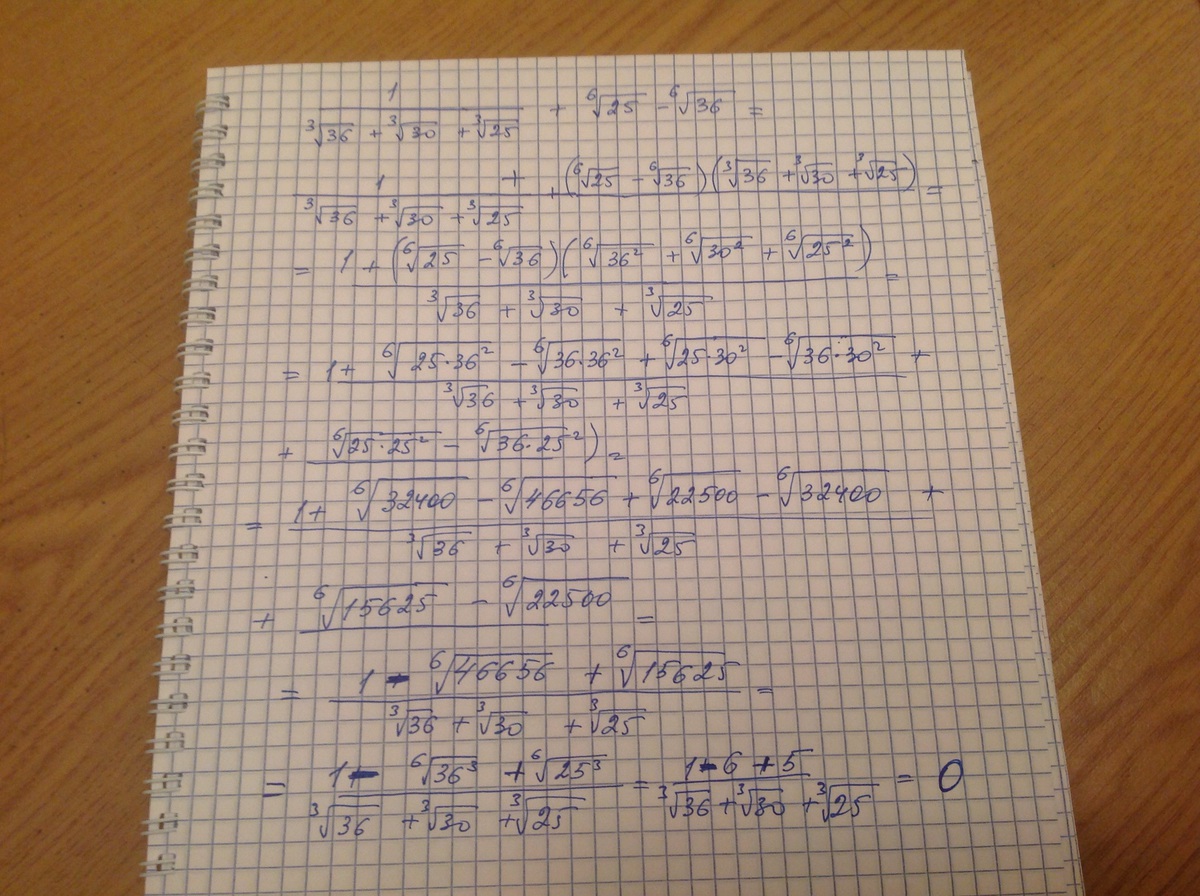 1
───────────── + ⁶√25 − ⁶√36 =
³√36 + ³√30 + ³√25
1 + + (⁶√25 − ⁶√36)(³√36 + ³√30 + ³√25) =
³√36 + ³√30 + ³√25
= 1 + (⁶√25 − ⁶√36)(⁶√36² + ⁶√30² + ⁶√25²) =
³√36 + ³√30 + ³√25
= 1 + ⁶√25·36² − ⁶√36·36² + ⁶√25·30² − ⁶√36·30² +
³√36 + ³√30 + ³√25
+ ⁶√25·25² − ⁶√36·25²) =
= 1 + ⁶√32400 − ⁶√46656 + ⁶√22500 − ⁶√32400 +
³√36 + ³√30 + ³√25
+ ⁶√15625 − ⁶√22500 =
= 1 − ⁶√46656 + ⁶√15625 =
³√36 + ³√30 + ³√25
= 1 − ⁶√36³ + ⁶√25³ = 1 − 6 + 5 = 0
³√36 + ³√30 + ³√25 ³√36 + ³√30 + ³√25